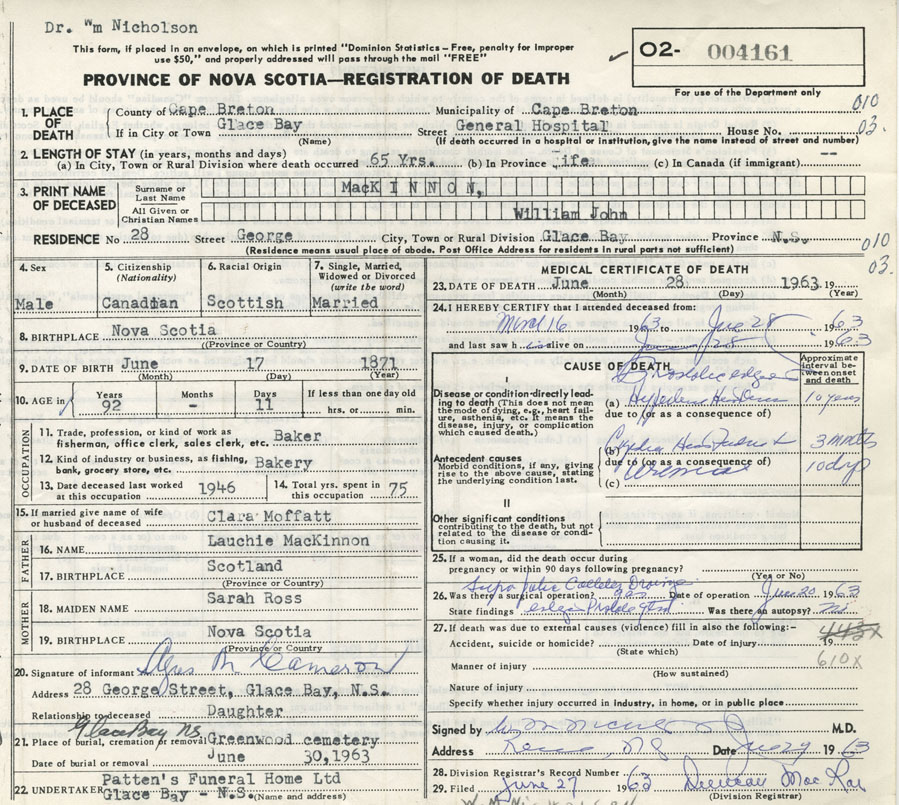 Dr. Wm Nicholson
This form, if placed in an envelope, on which is printed "Dominion Statistics - Free, penalty for improper
use $50," and properly addressed will pass through the mail "FREE"
✓ O2- 004161
PROVINCE OF NOVA SCOTIA—REGISTRATION OF DEATH
For use of the Department only
1. PLACE OF DEATH
County of Cape Breton Municipality of Cape Breton 010
If in City or Town Glace Bay Street General Hospital House No. 03.
(Name) (If death occurred in a hospital or institution, give the name instead of street and number)
2. LENGTH OF STAY (in years, months and days)
(a) In City, Town or Rural Division where death occurred 65 Yrs. (b) In Province ife. (c) In Canada (if immigrant) --
3. PRINT NAME OF DECEASED
Surname or Last Name MacKINNON,
All Given or Christian Names William John
RESIDENCE No 28 Street George City, Town or Rural Division Glace Bay Province N.S. 010
(Residence means usual place of abode. Post Office Address for residents in rural parts not sufficient) 03.
4. Sex
Male
5. Citizenship (Nationality)
Canadian
6. Racial Origin
Scottish
7. Single, Married, Widowed or Divorced (write the word)
Married
8. BIRTHPLACE Nova Scotia
((Province or Country)
9. DATE OF BIRTH June 17 1871
(Month) (Day) (Year)
10. AGE in Years Months Days If less than one day old
92 - 11 hrs. or min.
OCCUPATION
11. Trade, profession, or kind of work as
fisherman, office clerk, sales clerk, etc. Baker
12. Kind of industry or business, as fishing,
bank, grocery store, etc. Bakery
13. Date deceased last worked at this occupation 1946
14. Total yrs. spent in this occupation 75
15. If married give name of wife or husband of deceased Clara Moffatt
FATHER
16. NAME Lauchie MacKinnon
17. BIRTHPLACE Scotland
(Province or Country)
MOTHER
18. MAIDEN NAME Sarah Ross
19. BIRTHPLACE Nova Scotia
(Province or Country
20. Signature of informant M Cameron
Address 28 George Street, Glace Bay, N.S.
Relationship to deceased Daughter
Glace Bay NS
21. Place of burial, cremation or removal Greenwood cemetery
Date of burial or removal June 30,1963
22 UNDERTAKER Patten's Funeral Home Ltd
Glace Bay - N.S. (Name and address)
MEDICAL CERTIFICATE OF DEATH
23. DATE OF DEATH June 28 1963 19
(Month) (Day) (Year)
24. I HEREBY CERTIFY that I attended deceased from:
March 16 1963 to June 28 1963
and last saw h alive on June 28 1963
CAUSE OF DEATH
Approximate interval between onset and death
I
Disease or condition directly leading to death (This does not mean the mode of dying, e.g., heart failure, asthenia, etc. It means the disease, injury, or complication which caused death.)
(a) 10 years
due to (or as a consequence of)
Antecedent causes
Morbid conditions, if any, giving rise to the above cause, stating the underlying condition last.
(b) 3 months
due to (or as a consequence of)
(c) Uremia 10 days
II
Other significant conditions
contributing to the death, but not related to the disease or condition causing it.
25. If a woman, did the death occur during
pregnancy or within 90 days following pregnancy?
(Yes or No)
26. Was there a surgical operation? yes Date of operation June 20 1963
State findings Was there an autopsy? no
27. If death was due to external causes (violence) fill in also the following:-
Accident, suicide or homicide? Date of injury 19
(State which) 610X
Manner of injury
(How sustained)
Nature of injury
Specify whether injury occurred in industry, in home, or in public place
Signed by M.D.
Address NS Date 1963
28. Division Registrar's Record Number
29. Filed June 27 1963 Duncan Mac Rae
(Division Registrar)